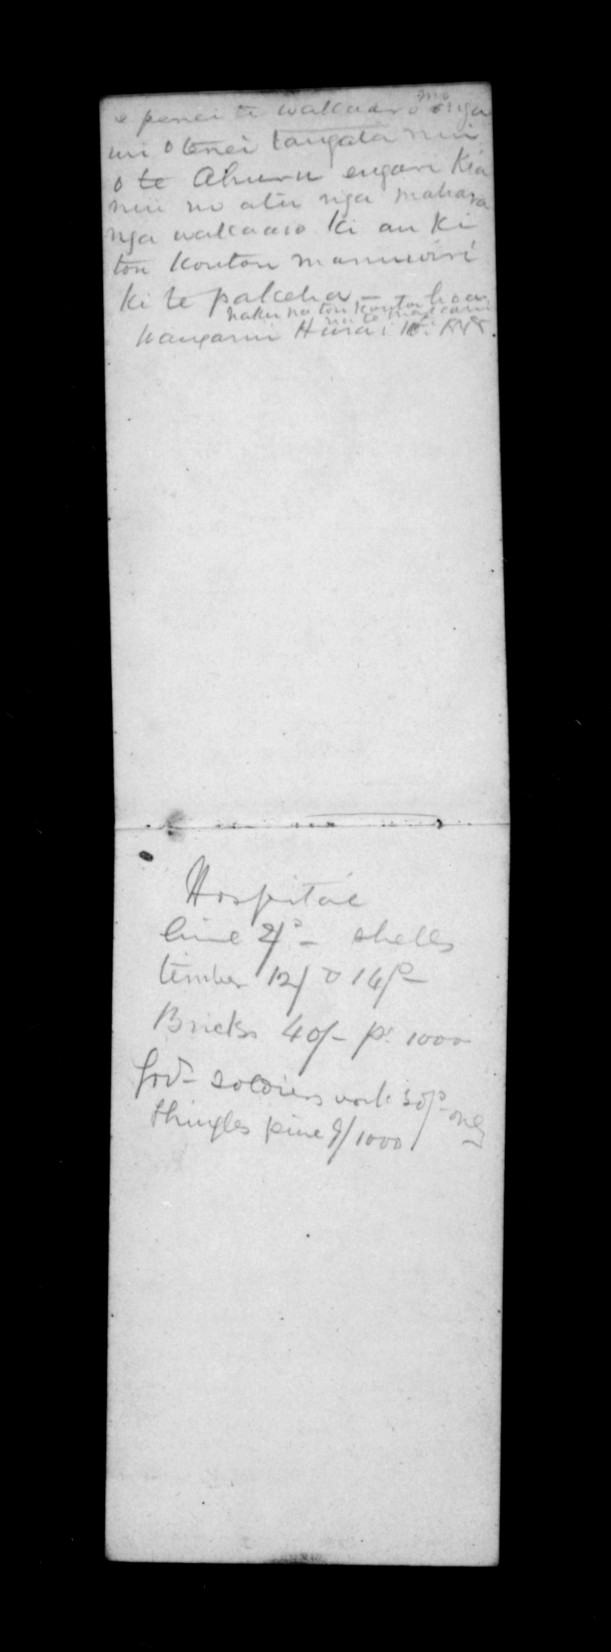 e penei te wakaaro mo onga
iwi o tenei tangata nui
o te Ahuru engari kia
nui no atu nga mahara
nga wakaaro ki au ki
tou koutou manuwiri
ki te pakeha
naku na tou koutou hoa
na te Makarini
Wangarui Hurai
Hospital
lime 2/- shells
timber 12/ 14/-
Bricks 40/- pr 1000
soldiers work only
Shingles pine 9/1000